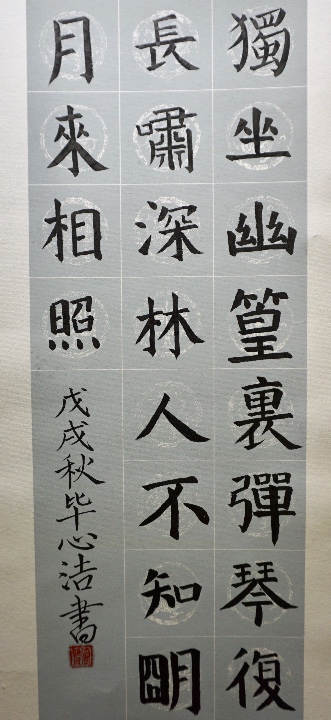 獨坐幽篁裏彈琴復
長嘯深林人不知朙
月來相照
戊戌秋毕心洁書